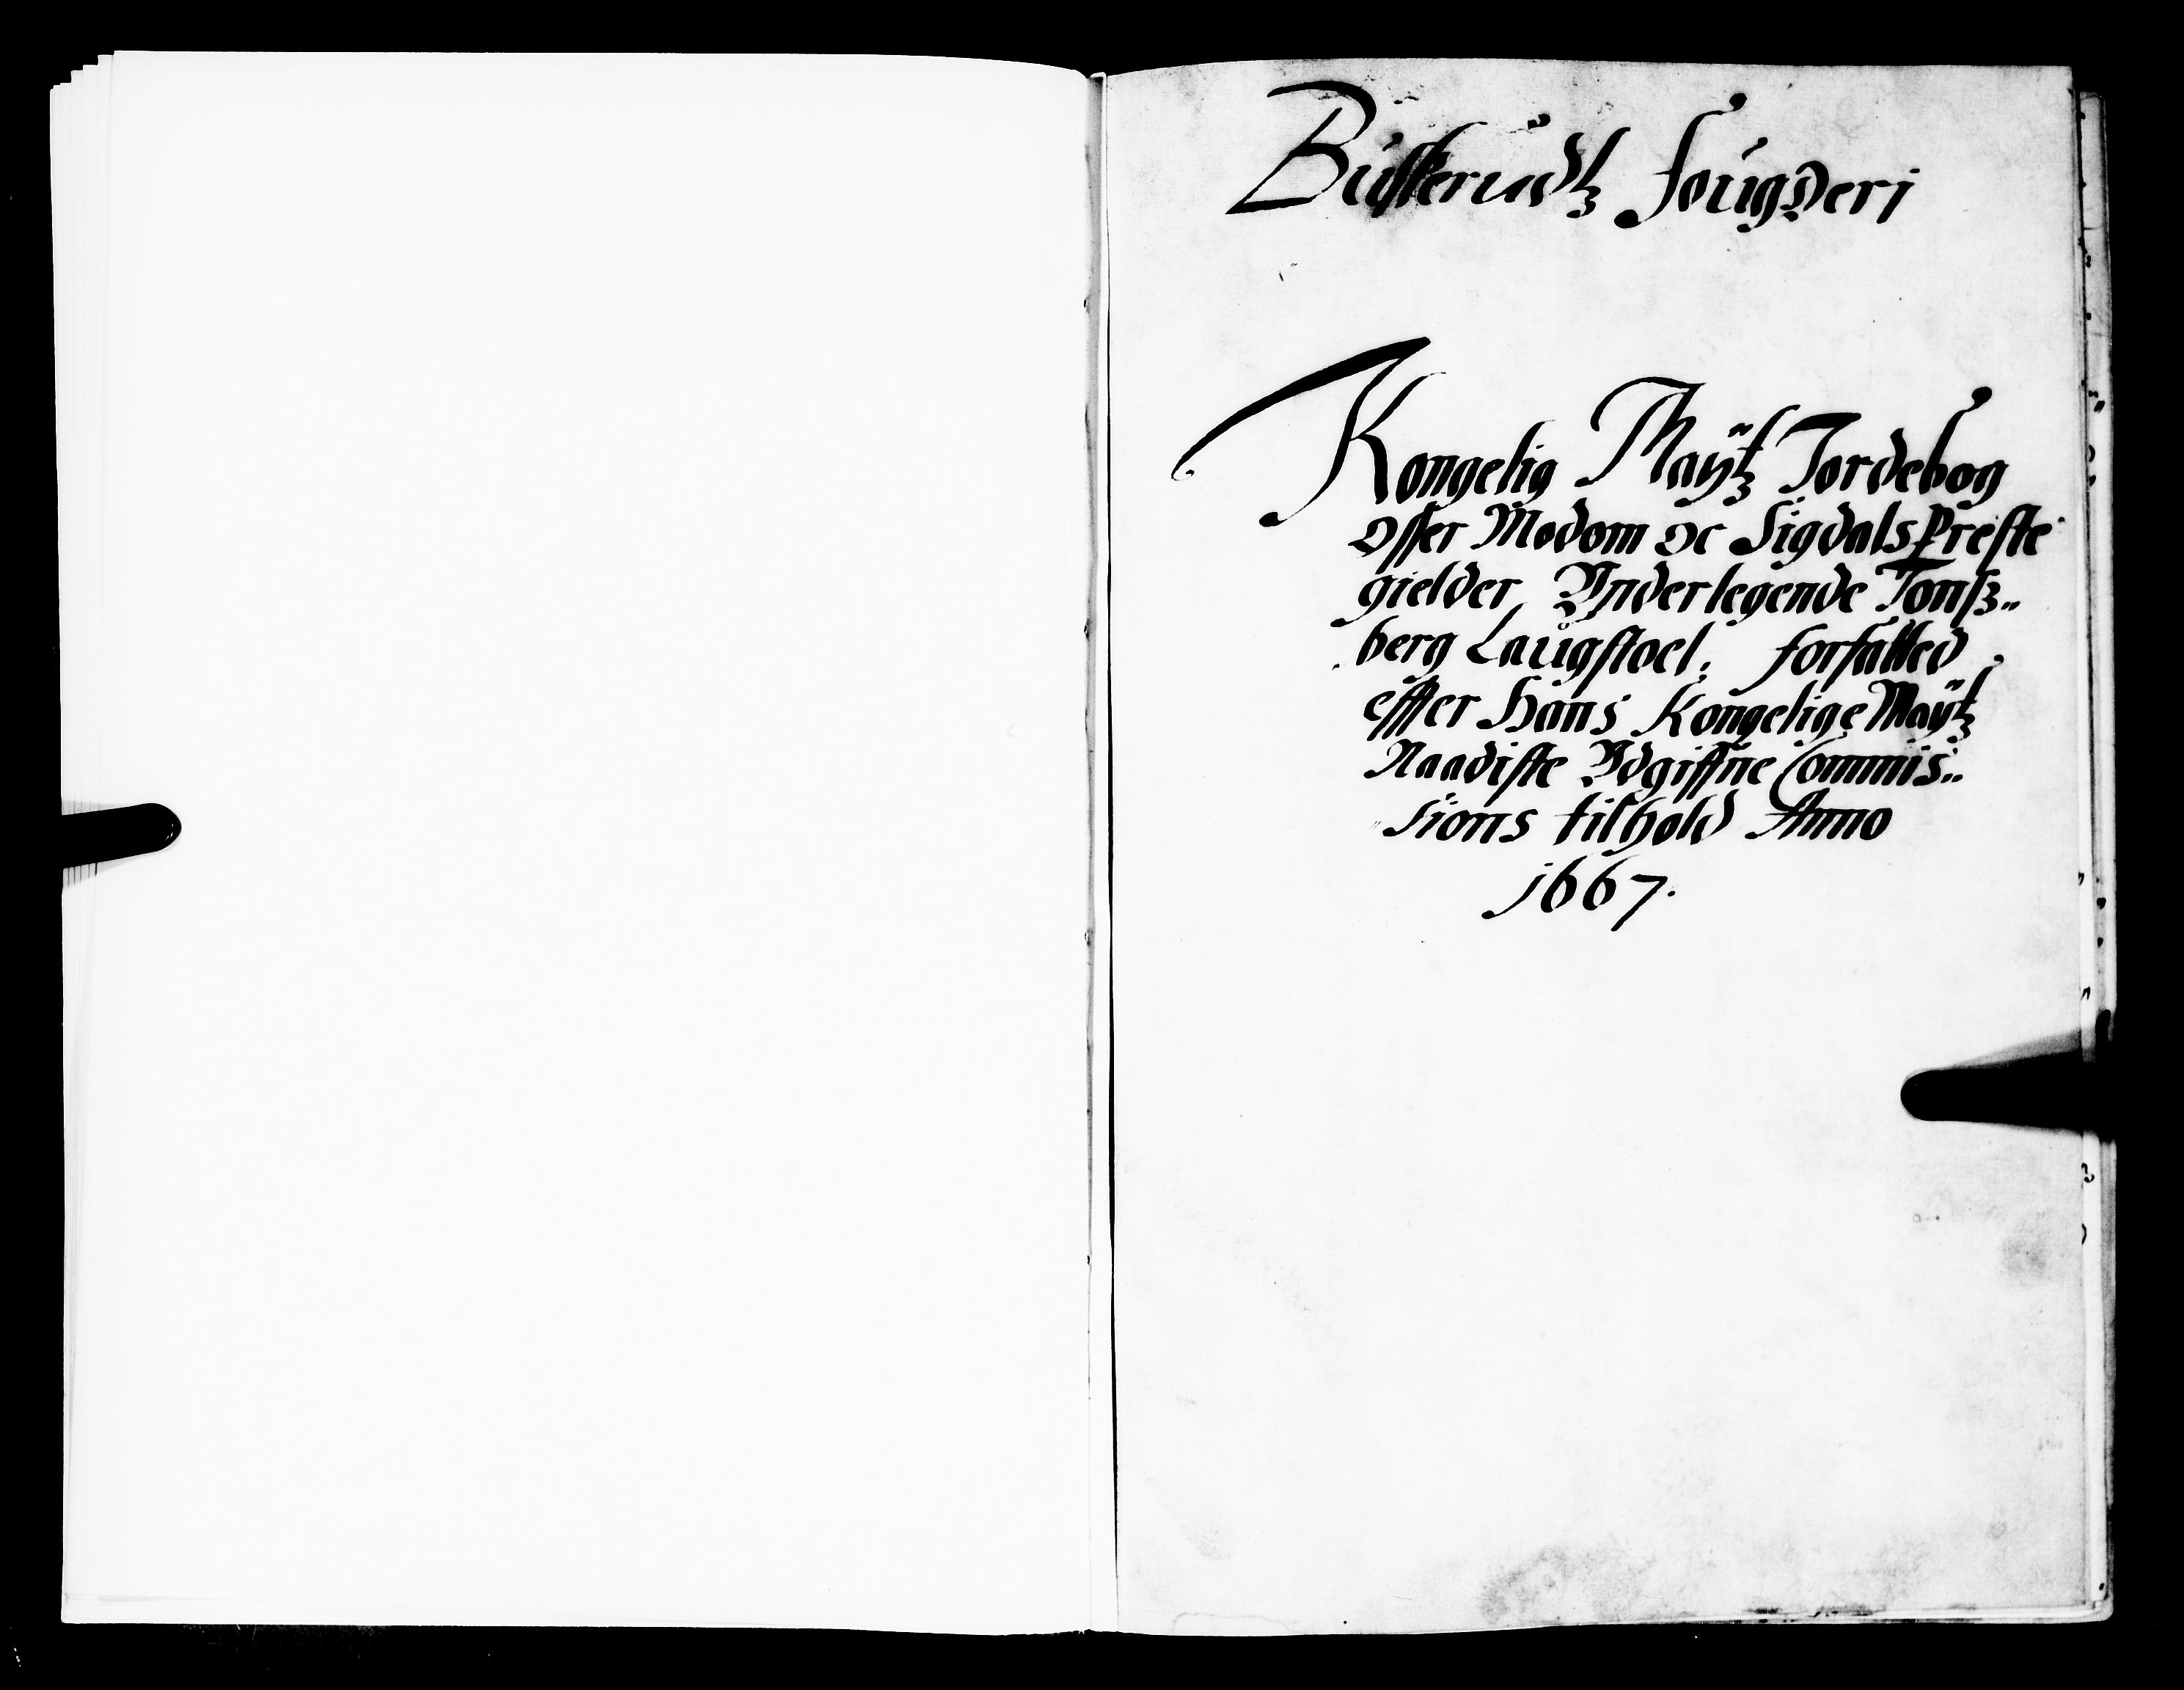 Buskerudtz fougderj
Kongelig Maÿtz Jordebog
Offer Modom oc Sigdals Preste
gielder Vnderlegende Tonsz„
berg Laugstoel; forfatted
effter Hans Kongelige Maÿtz
Naadiste Vdgiffne Commis„
„sions tilhold Anno
1667.